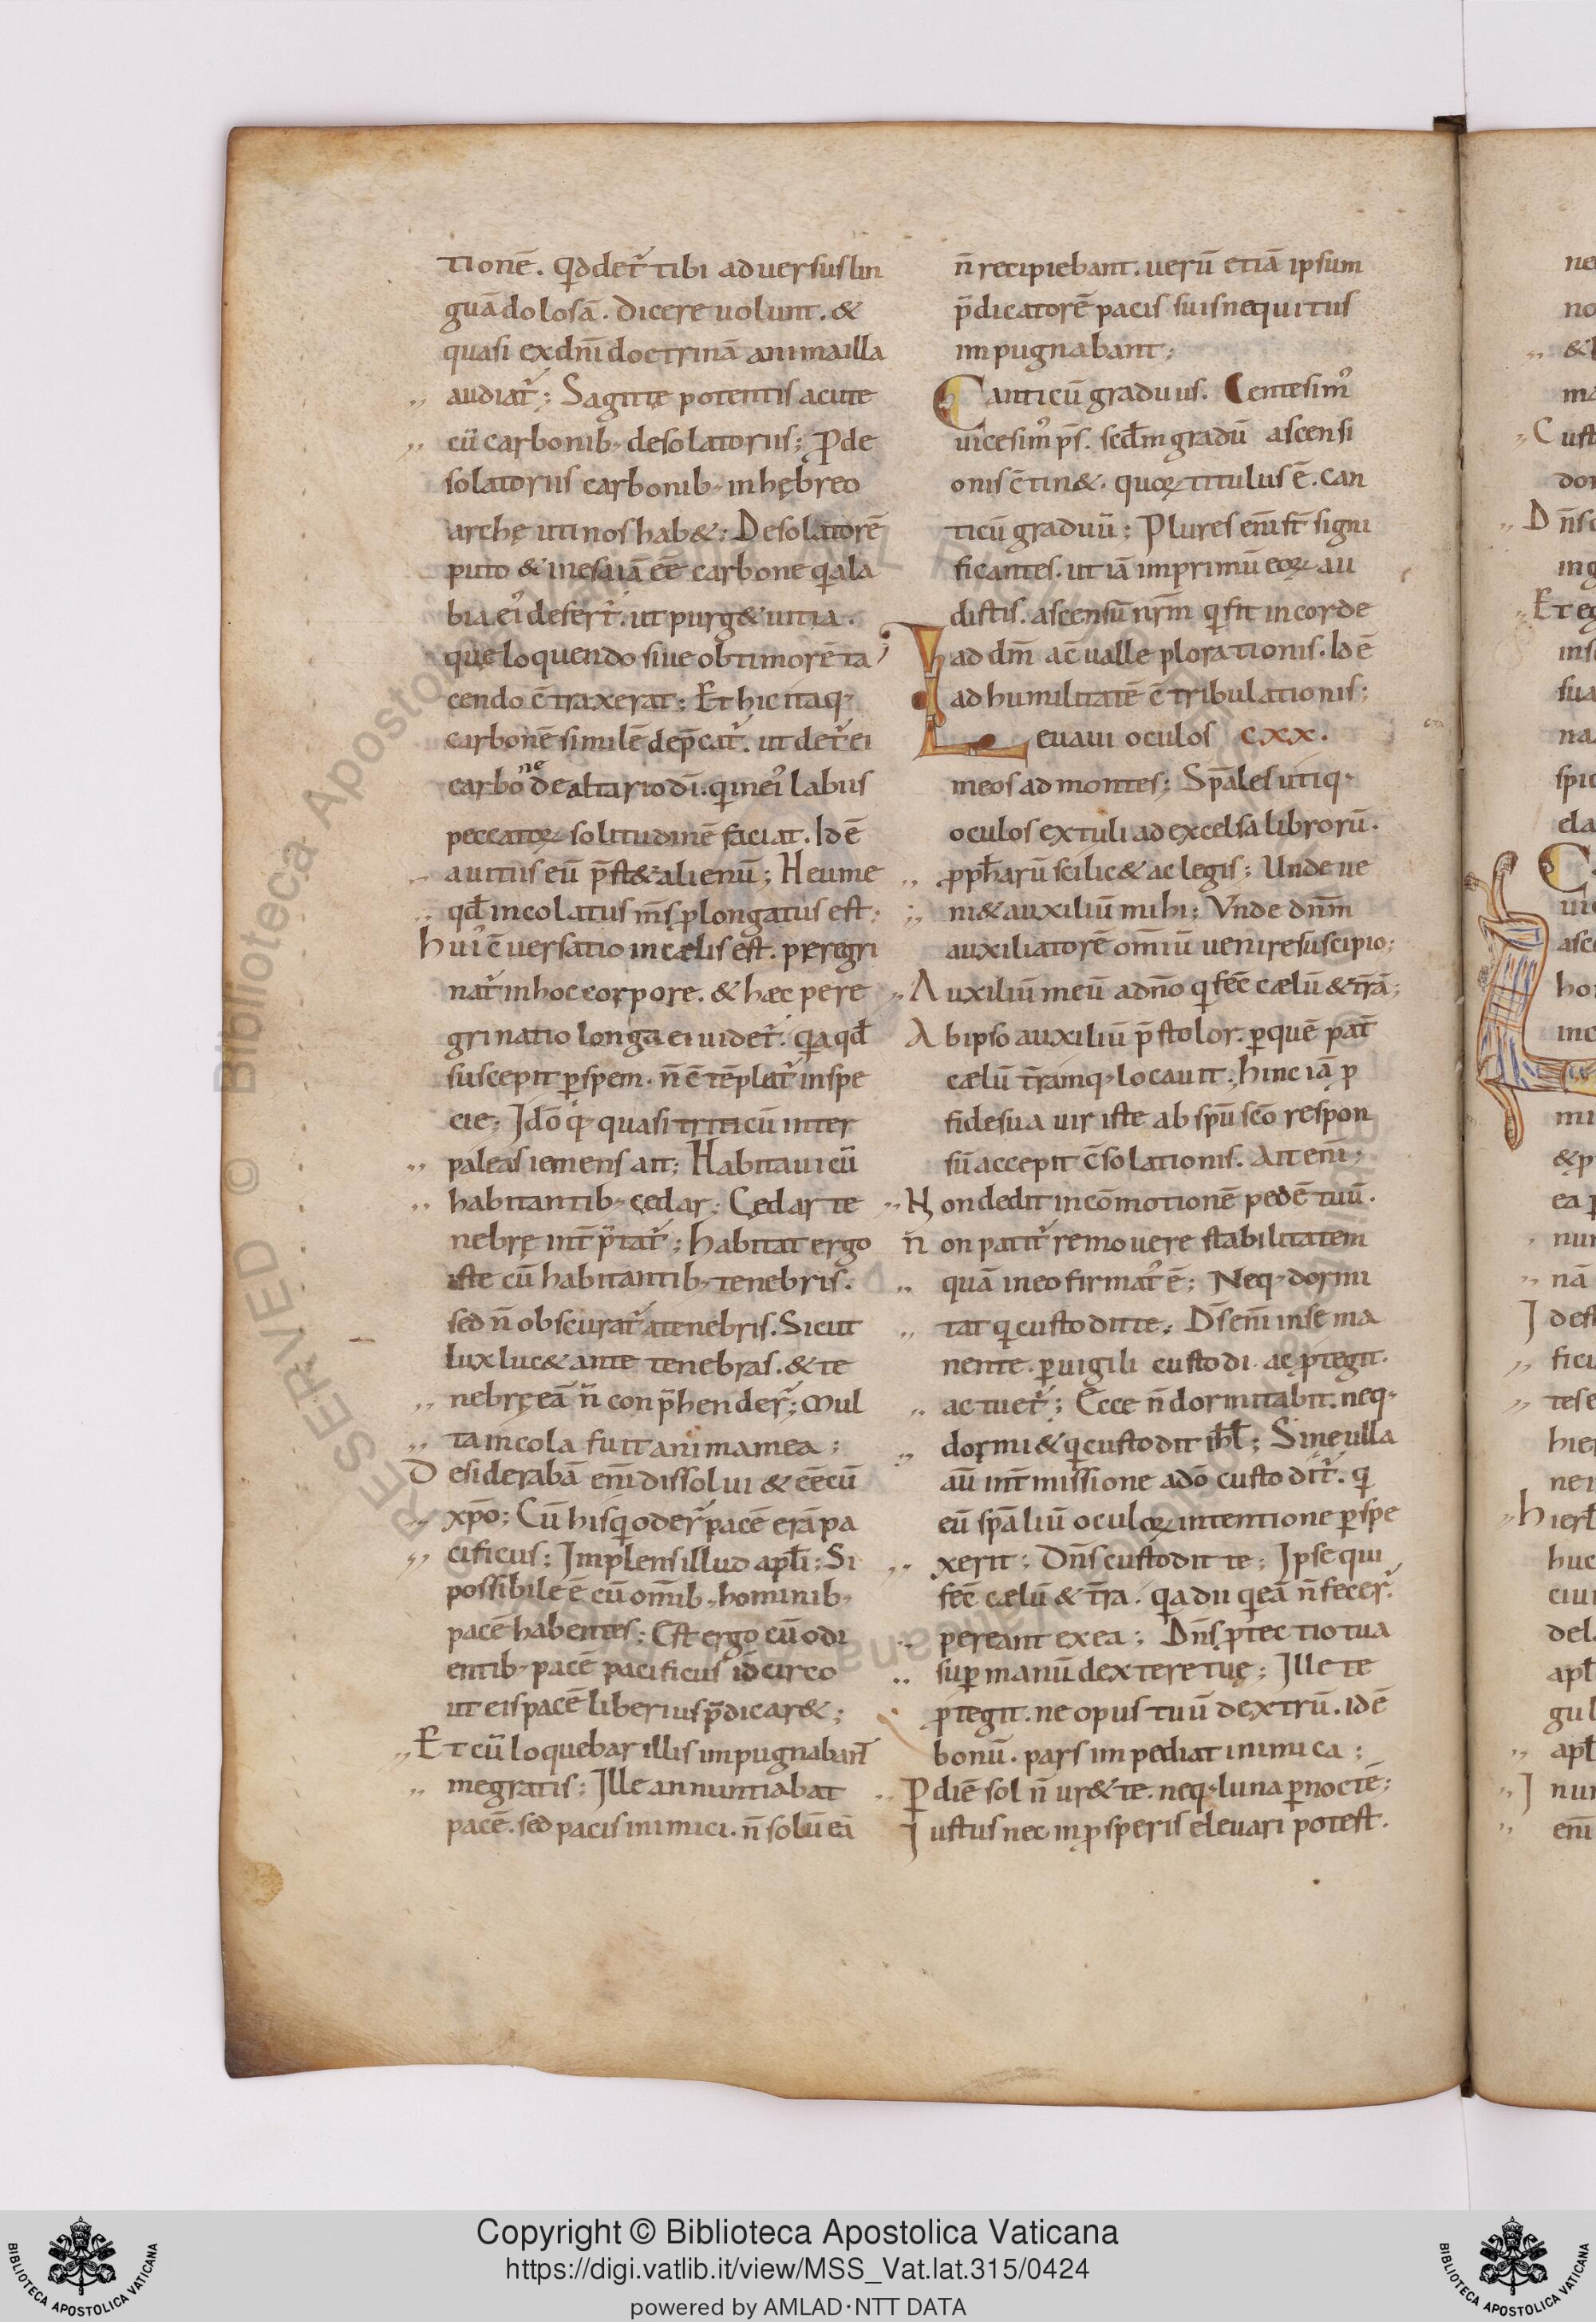 tionē. qđ detᷣ tibi aduersus lin
guā dolosā. Dicere uolunt. &
quasi ex dnī doctrinā anima illa
audiatᷣ; Sagittę potentis acute
cū carbonib; desolatoriis; P̄ de
solatoriis carbonib; in hębreo
archę uti nos hab&; Desolatorē
puto & in esaiā ēē carbonē q ala
bia ei᾽ defertᷣ. ut purg& uitia.
quę loquendo siue ob timorē ta
cendo c̄traxerat; Et hic itaq;
carbonē similē dep̄catᷣ. ut detᷣ ei
carbone de altario dī. q in ei᾽ labiis
peccatoꝝ solitudinē faciat. Id ē
a uitiis eū p̄st& alienū; Heu me
qđ incolatus m̄s ꝓlongatus est;
Hui᾽ c̄uersatio in cælis est. peregri
natᷣ in hoc corpore. & hæc pere
grinatio longa ei uidetᷣ. qa qđ
suscepit ꝑ spem. n̄ c̄tēplatᷣ in spe
cie; Idō q; quasi triticū inter
paleas iemens ait; Habitaui cū
habitantib; cędar; Cędar te
nebrę int̄p̄tatᷣ; Habitat ergo
iste cū habitantib; tenebris.
sed n̄ obscuratᷣ a tenebris. Sicut
lux luc& ante tenebras. & te
nebrę eā n̄ conp̄hender᾽; Mul
ta incola fuit anima mea;
Desiderabā enī dissolui & ēē cū
xp̄o; Cū his q oder᾽ pacē erā pa
cificus; Implens illud apłi; Si
possibile ē cū om̄ib; hominib;
pacē habentes; Est ergo cū odi
entib; pacē pacificus idcirco
ut eis pacē liberius p̄dicar&;
Et cū loquebar illis impugnabant̄
me gratis; Ille annuntiabat
pacē. sed pacis inimici. n̄ solū eā
n̄ recipiebant. uerū etiā ipsum
p̄dicatorē pacis suis nequitiis
impugnabant;
Canticū graduus. Centesim᾽
uicesim᾽ ps̄. scđm gradū ascensi
onis c̄tin&. quoꝝ titulus ē. can
ticū graduū; Plures enī st̄ signi
ficantes. ut iā in primū eoꝝ au
distis. ascensū nr̄m q fit in corde
ad dm̄ ac̄ualle plorationis. Id ē
ad humilitatē c̄tribulationis;
Leuaui oculos CXX.
meos ad montes; Sp̄ales utiq;
oculos extuli ad excelsa librorū.
ꝓpħarū scilic& ac legis; Unde ue
ni& auxiliū mihi; Vnde dn̄m
auxiliatorē om̄iū uenire suscipio;
Auxiliū meū a dn̄o q fēc cælū & tr̄ā;
Ab ipso auxiliū p̄stolor. ꝑ quē pat̄
cælū tr̄amq; locauit; hinc iā ꝓ
fide sua uir iste ab sp̄u sc̄o respon
sū accepit c̄solationis. Ait enī;
Non dedit in cōmotionē pedē tuū.
n̄on patitᷣ remouere stabilitatem
quā in eo firmat᾽ ē; Neq; dormi
tat q custodit te; Ds̄ enī in se ma
nente. ꝑuigili custodi ac ꝓtegit.
ac tuetᷣ; Ecce n̄ dormitabit. neq;
dormi& q custodit iħł; Sine ulla
aū int̄missione a dō custoditᷣ. q
eū sp̄aliū oculoꝝ intentione ꝑspe
xerit; Dn̄s custodit te; Ipse qui
fēc cælū & tr̄a. qa dii q eā n̄ fecer᾽
pereant ex ea; Dn̄s ꝓtectio tua
suꝑ manū dextere tuę; Ille te
ꝓtegit. ne opus tuū dextrū. id ē
bonū. pars impediat inimica;
P̄ diē sol n̄ ur& te. neq; luna ꝑ noctē;
Iustus nec in ꝓsperis eleuari potest.
Copyright © Biblioteca Apostolica Vaticana
https://digi.vatlib.it/view/MSS_Vat.lat.315/0424
powered by AMLAD·NTT DATA